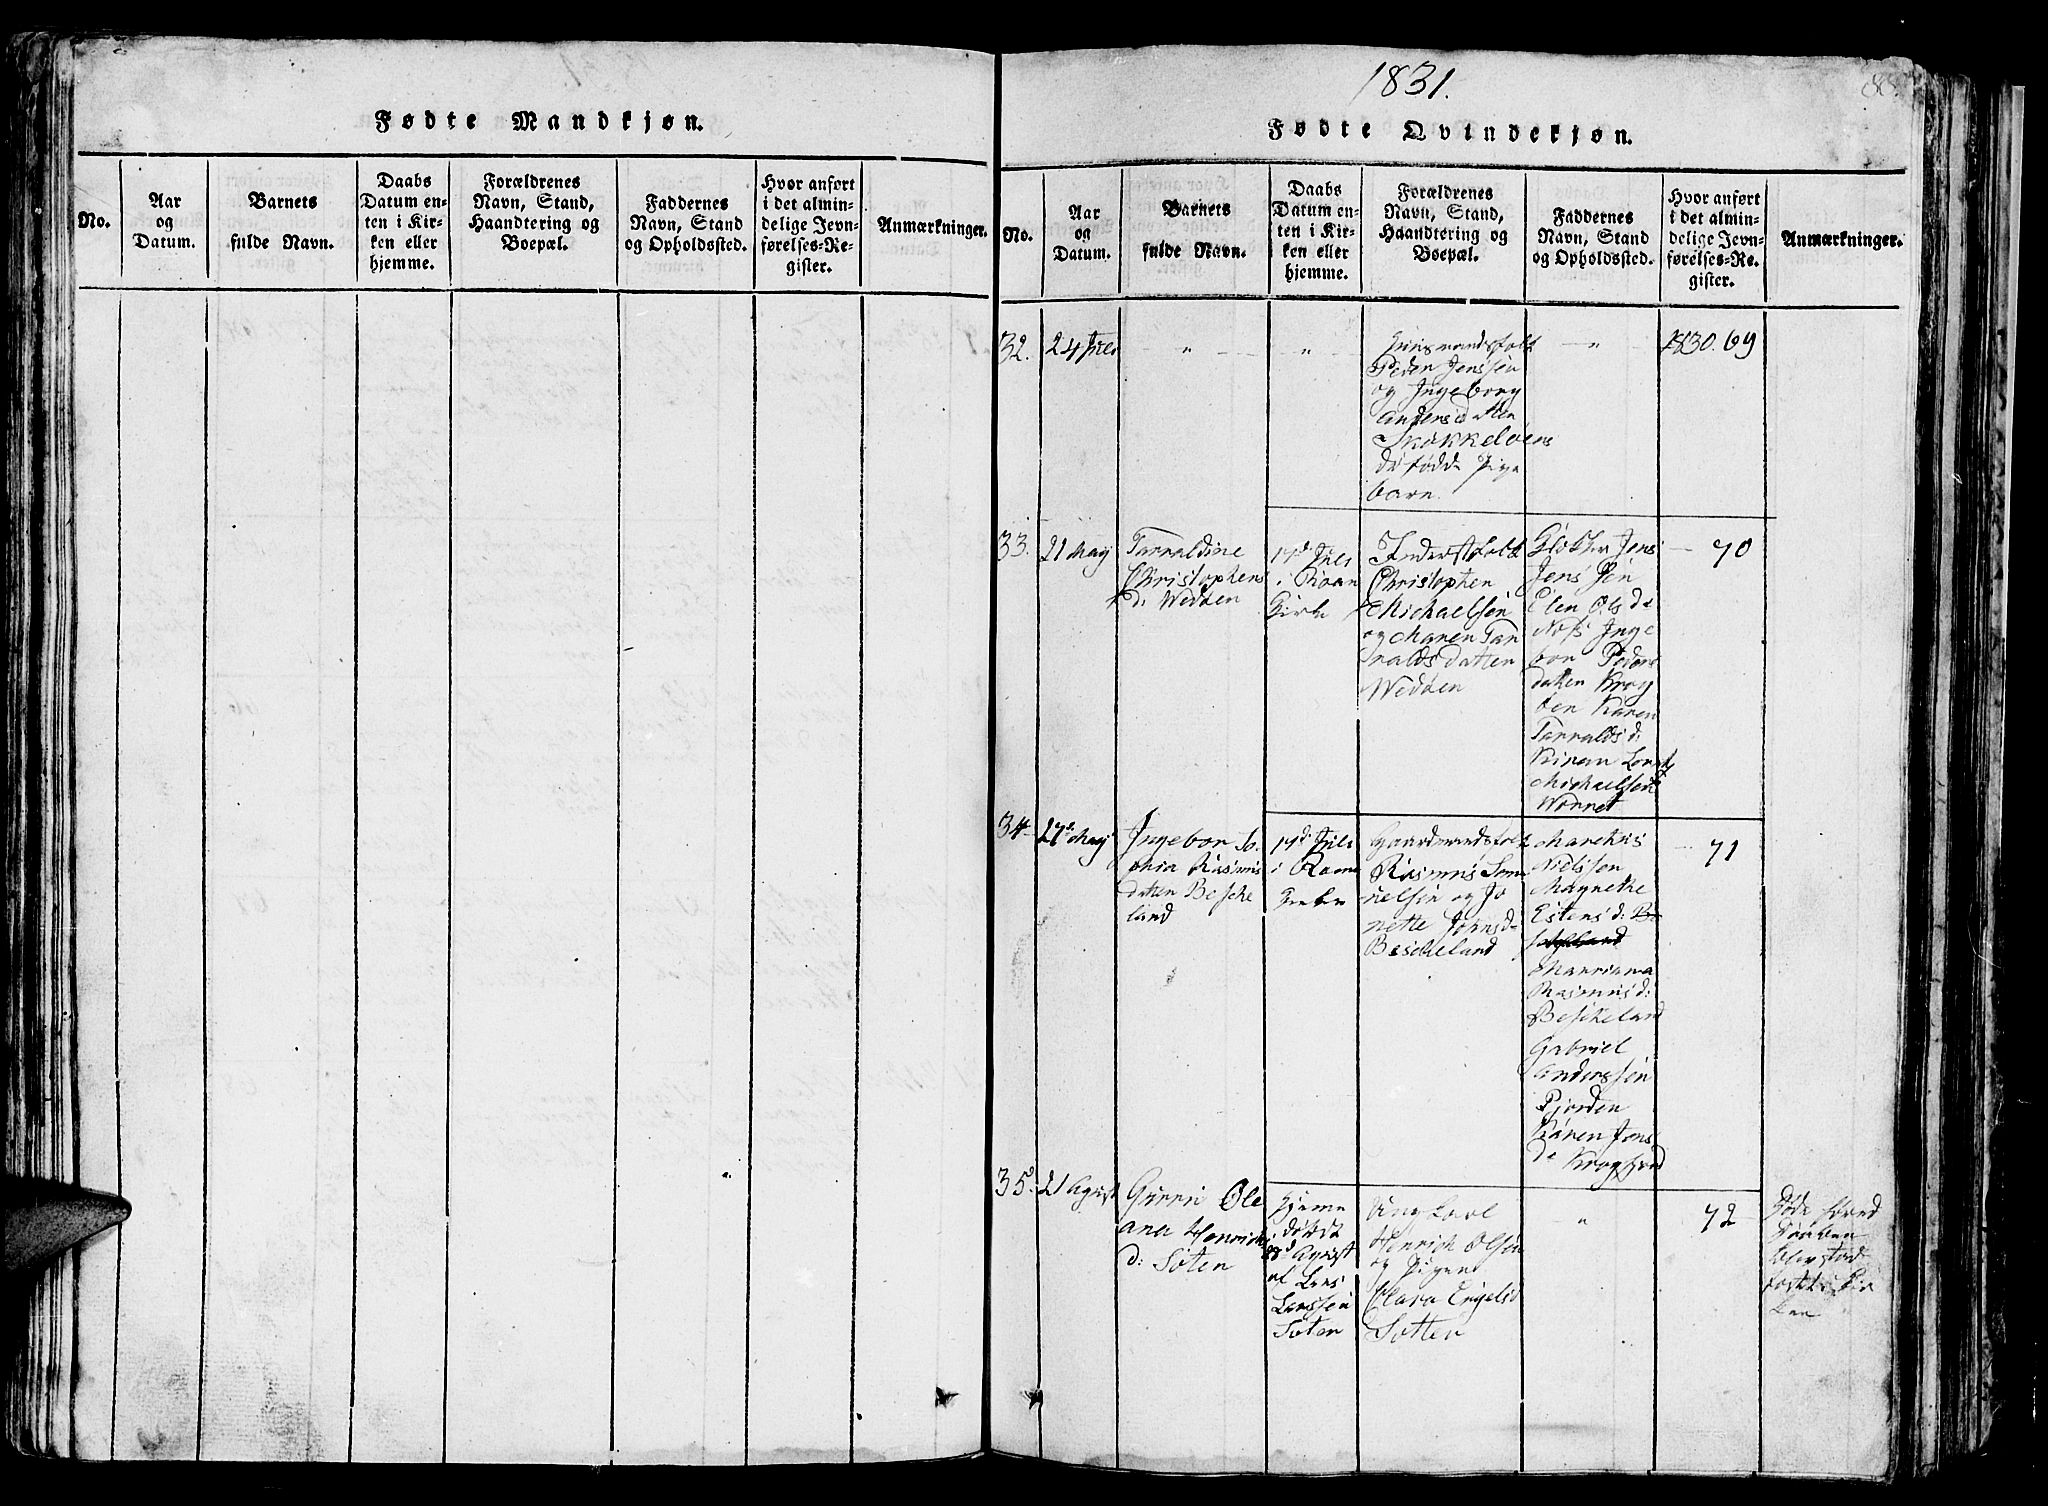 1831.
88
Fødte Mandkjøn.
No.
Aar
og
Datum.
Barnets
fulde Navn.
Daabs
Datum en-
ten i Kir-
ken eller
hjemme.
Forældrenes
Navn, Stand,
Haandtering og
Boepæl.
Faddernes
Navn, Stand
og Opholdssted.
Hvor anført
i det almin-
delige Jevn-
førelses-Re-
gister.
Anmærkninger.
Fødte Qvindekjøn.
No.
Aar
og
Datum.
Barnets
fulde Navn.
Daabs
Datum en-
ten i Kir-
ken eller
hjemme.
Forældrenes
Navn, Stand,
Haandtering og
Boepæl.
Faddernes
Navn, Stand
og Opholdssted.
Hvor anført
i det almin-
delige Jevn-
førelses-Re-
gister.
Anmærkninger.
32.
24
"
"
Peder Jenssen
og Ingeborg
Anders datter
Skokkeløens
død fødde Pige
barn
"
1830. 69
33.
21 May
Tarraldine
Christophers
d: Wedøen
17d
i Roan
Kirke
Inderstfolk
Christopher
Michaelsen
og Maren Tar
ralds datter
Wedøen
Klokker Jens
Jens sen
Elen Ols d:
Inge
bor Peders
datter Krog
øen Karen
Tarralds d:
Kiran
Michaelsen
Worret
70
34.
27d May
Ingebor So
phia Rasmus
datter Beske
land
17d
i Roan
Kirke
Gaardmandsfolk
Rasmus
nelsen og Jo
nette Johnsd:
Beskeland
Marethis
Nielssen
Magrethe
Estens d: Be
skeland
Marriana
Rasmus d:
Beskeland
Gabriel
Anderssen
Fjorden
Karen Jens
d: Krogfjord
71
35.
21 Agust
Gurri Ole
ana Henrichs
d: Soten
Hjeme
døbdt
28d Agust
af Lars
Larssen
Soten
Ung karl
Henrich Olsen
og Pigen
Clara Engelsd
Sotten
"
72
Døde førend
Daaben
blev stad
fæstet i Kir
ken